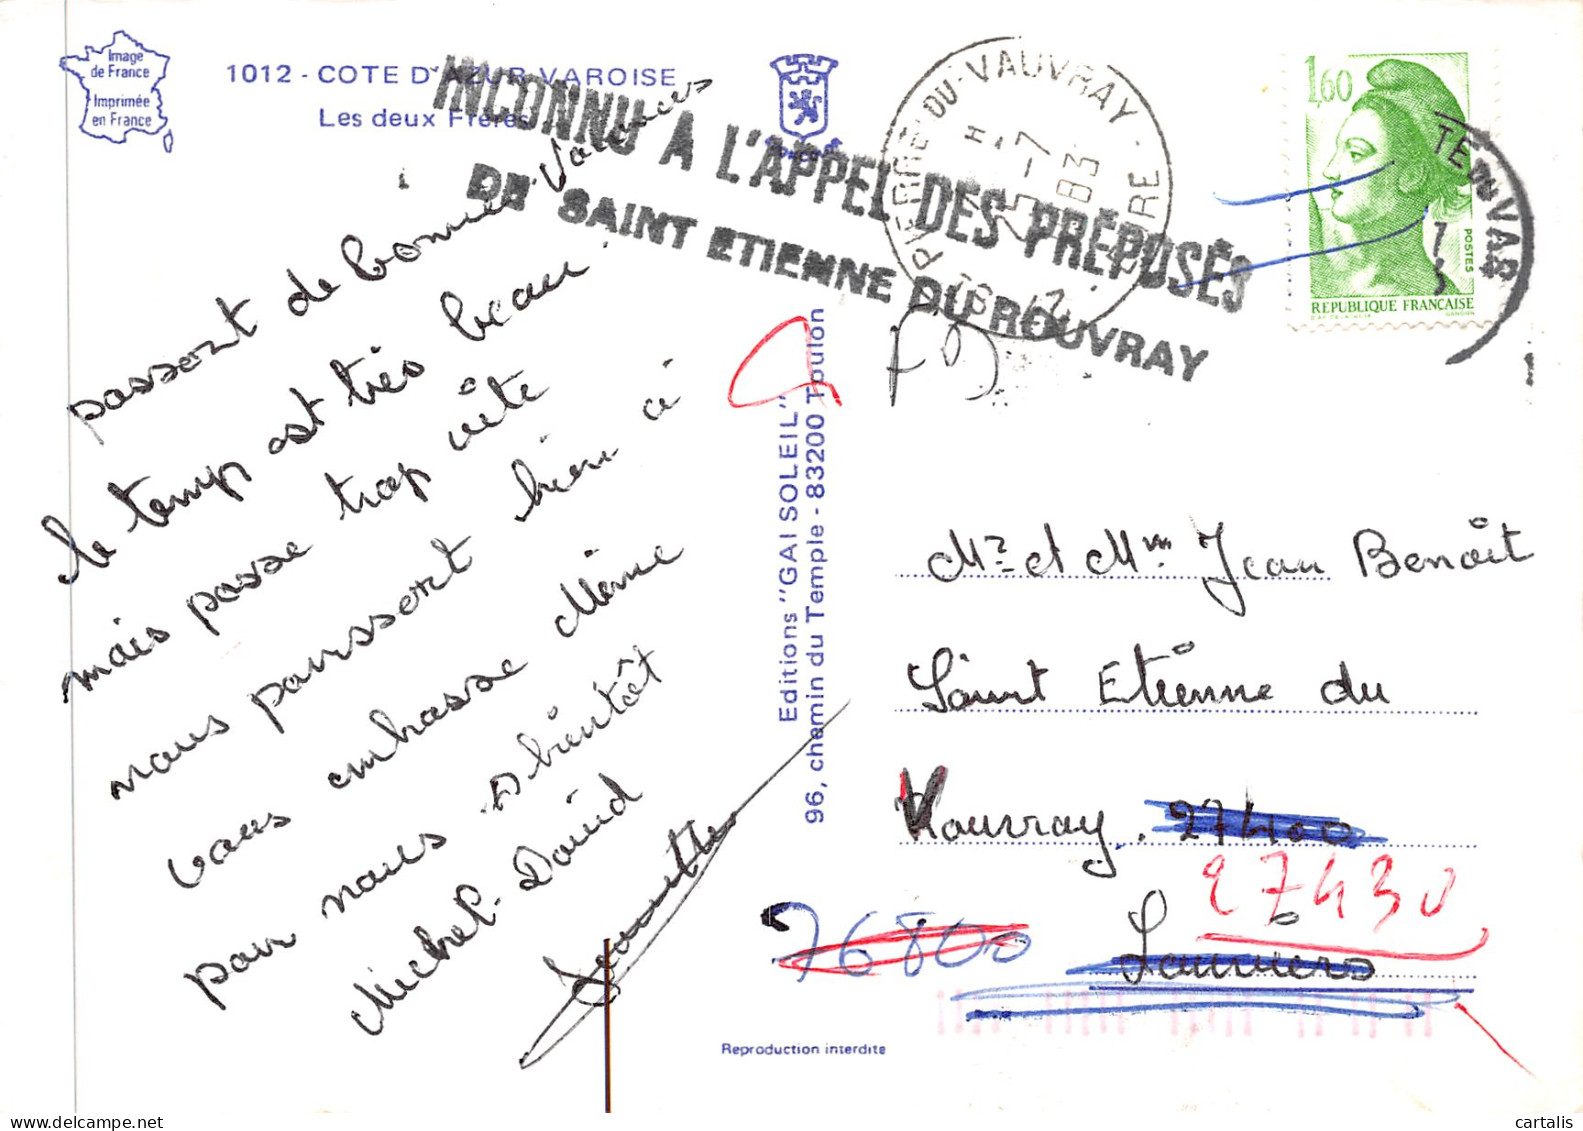 Image
de France
Imprimée
en France
1012 - COTE D'AZUR VAROISE
Les deux Frères
INCONNU A L'APPEL DES PRÉPOSÉS
DE SAINT ETIENNE DU ROUVRAY
PIERRE DU VAUVRAY
-7
83
EURE
1,60
POSTES
REPUBLIQUE FRANÇAISE
TE DU VAS
passont de bonnes vacances
le temps est très beau
mais passe trop vite
nous penssont bien à
vous embrasse Mémé
pour nous. A bientôt
Michel. David
Editions "GAI SOLEIL"
96, chemin du Temple - 83200 Toulon
Mr et Mme Jean Benoit
Saint Etienne du
Vouvray. 27400
27430
76800
Louviers
Reproduction interdite
cartalis